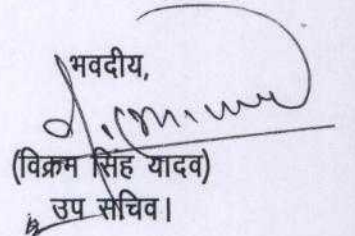 भवदीय,
(विक्रम सिंह यादव)
उप सचिव।